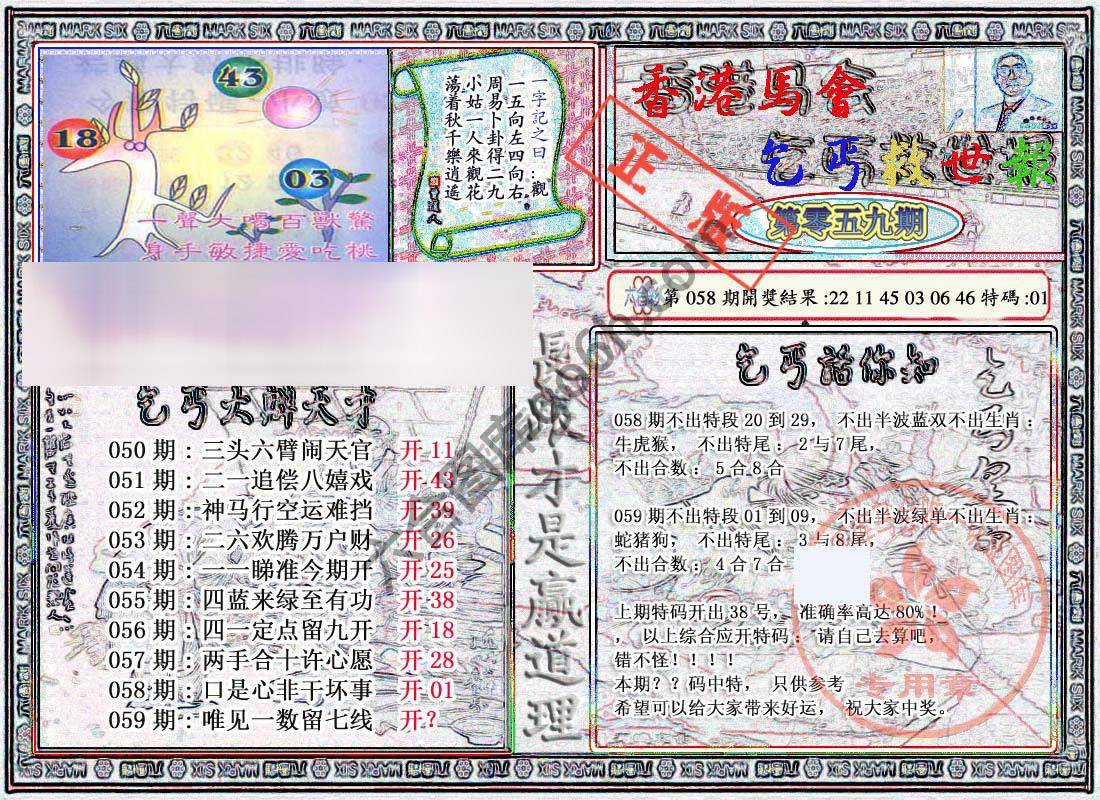 MARK SIX
43
18
03
一聲大喝百獸驚
身手敏捷愛吃桃
一字記之曰：觀
一五向左四向右，
周易卜卦得二九
小姑一人來觀花
蕩着秋千樂逍遥
香港馬會
乞丐救世報
第零五九期
正
第 058 期開獎結果 :22 11 45 03 06 46 特碼 :01
乞丐大贈天才
050 期 : 三头六臂闹天官 开 11
051 期 : 二一追偿八嬉戏 开 43
052 期 : 神马行空运难挡 开 39
053 期 : 三六欢腾万户财 开 26
054 期 : 一一睇准今期开 开 25
055 期 : 四蓝来绿至有功 开 38
056 期 : 四一定点留九开 开 18
057 期 : 两手合十许心愿 开 28
058 期 : 口是心非干坏事 开 01
059 期 : 唯见一数留七线 开 ?
才是赢道理
乞丐話你知
058 期不出特段 20 到 29， 不出半波蓝双不出生肖 :
牛虎猴， 不出特尾 : 2 与 7 尾，
不出合数 : 5 合 8 合
059 期不出特段 01 到 09， 不出半波绿单不出生肖 :
蛇猪狗， 不出特尾 : 3 与 8 尾，
不出合数 : 4 合 7 合
上期特码开出 38 号， 准确率高达 80% !
， 以上综合应开特码 : 请自己去算吧，
错不怪 ! ! ! !
本期 ? ? 码中特， 只供参考
希望可以给大家带来好运， 祝大家中奖。
专用章